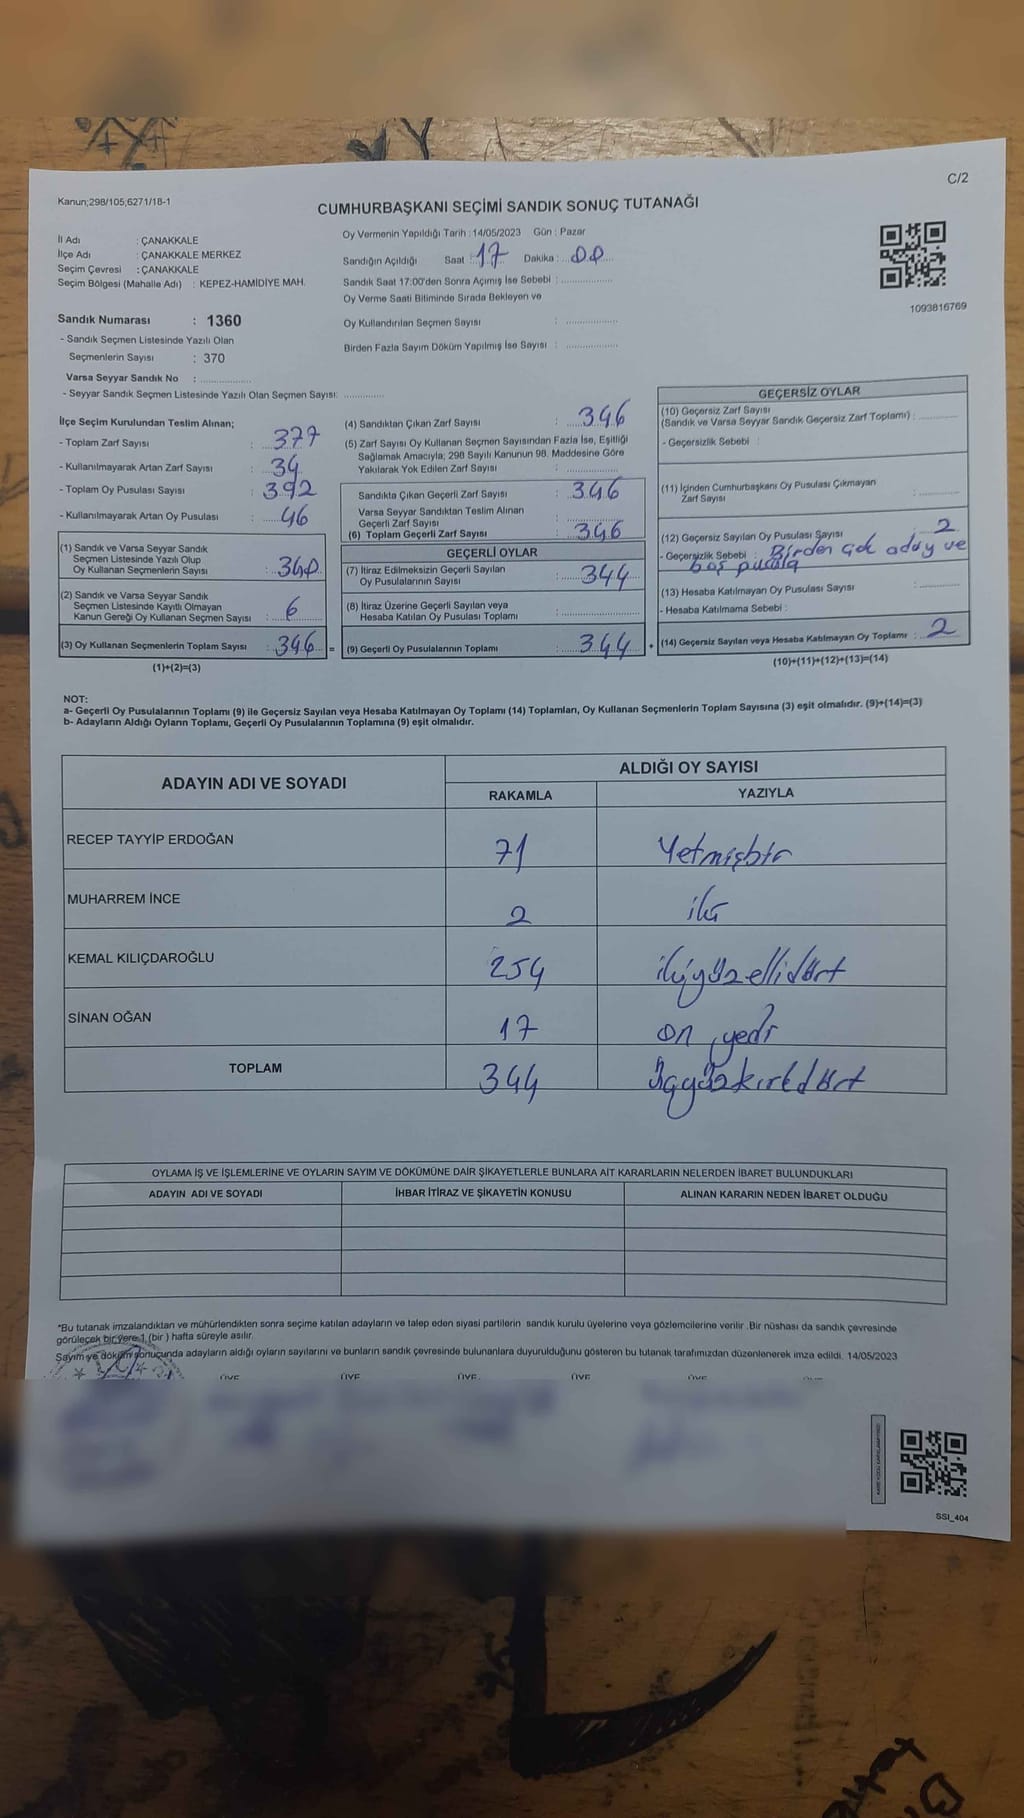 C/2
Kanun;298/105,6271/18-1
CUMHURBAŞKANI SEÇİMİ SANDIK SONUÇ TUTANAĞI
İl Adı : ÇANAKKALE
İlçe Adı : ÇANAKKALE MERKEZ
Seçim Çevresi : ÇANAKKALE
Seçim Bölgesi (Mahalle Adı) : KEPEZ-HAMİDİYE MAH.
Sandık Numarası : 1360
- Sandık Seçmen Listesinde Yazılı Olan
Seçmenlerin Sayısı : 370
Varsa Seyyar Sandık No : ..................
- Seyyar Sandık Seçmen Listesinde Yazılı Olan Seçmen Sayısı: ..............
Oy Vermenin Yapıldığı Tarih : 14/05/2023 Gün : Pazar
Sandığın Açıldığı Saat : 17 Dakika : 00
Sandık Saat 17:00'den Sonra Açımış İse Sebebi : ..................
Oy Verme Saati Bitiminde Sırada Bekleyen ve
Oy Kullandırılan Seçmen Sayısı : ..................
Birden Fazla Sayım Döküm Yapılmış İse Sayısı : ..................
1093816769
İlçe Seçim Kurulundan Teslim Alınan;
- Toplam Zarf Sayısı : 377
- Kullanılmayarak Artan Zarf Sayısı : 34
- Toplam Oy Pusulası Sayısı : 392
- Kullanılmayarak Artan Oy Pusulası : 46
(1) Sandık ve Varsa Seyyar Sandık
Seçmen Listesinde Yazılı Olup
Oy Kullanan Seçmenlerin Sayısı : 340
(2) Sandık ve Varsa Seyyar Sandık
Seçmen Listesinde Kayıtlı Olmayan
Kanun Gereği Oy Kullanan Seçmen Sayısı : 6
(3) Oy Kullanan Seçmenlerin Toplam Sayısı : 346 =
(1)+(2)=(3)
(4) Sandıktan Çıkan Zarf Sayısı : 346
(5) Zarf Sayısı Oy Kullanan Seçmen Sayısından Fazla İse, Eşitliği
Sağlamak Amacıyla; 298 Sayılı Kanunun 98. Maddesine Göre
Yakılarak Yok Edilen Zarf Sayısı : ..................
Sandıkta Çıkan Geçerli Zarf Sayısı : 346
Varsa Seyyar Sandıktan Teslim Alınan
Geçerli Zarf Sayısı : ..................
(6) Toplam Geçerli Zarf Sayısı : 346
GEÇERLİ OYLAR
(7) İtiraz Edilmeksizin Geçerli Sayılan
Oy Pusulalarının Sayısı : 344
(8) İtiraz Üzerine Geçerli Sayılan veya
Hesaba Katılan Oy Pusulası Toplamı : ..................
(9) Geçerli Oy Pusulalarının Toplamı : 344 +
GEÇERSİZ OYLAR
(10) Geçersiz Zarf Sayısı
(Sandık ve Varsa Seyyar Sandık Geçersiz Zarf Toplamı) : ..............
- Geçersizlik Sebebi :
(11) İçinden Cumhurbaşkanı Oy Pusulası Çıkmayan
Zarf Sayısı : ..............
(12) Geçersiz Sayılan Oy Pusulası Sayısı : 2
- Geçersizlik Sebebi : Birden çok aday ve
boş pusula
(13) Hesaba Katılmayan Oy Pusulası Sayısı : ..............
- Hesaba Katılmama Sebebi :
(14) Geçersiz Sayılan veya Hesaba Katılmayan Oy Toplamı : 2
(10)+(11)+(12)+(13)=(14)
NOT:
a- Geçerli Oy Pusulalarının Toplamı (9) ile Geçersiz Sayılan veya Hesaba Katılmayan Oy Toplamı (14) Toplamları, Oy Kullanan Seçmenlerin Toplam Sayısına (3) eşit olmalıdır. (9)+(14)=(3)
b- Adayların Aldığı Oyların Toplamı, Geçerli Oy Pusulalarının Toplamına (9) eşit olmalıdır.
ADAYIN ADI VE SOYADI ALDIĞI OY SAYISI
RAKAMLA YAZIYLA
RECEP TAYYİP ERDOĞAN 71 Yetmişbir
MUHARREM İNCE 2 iki
KEMAL KILIÇDAROĞLU 254 ikiyüzellidört
SİNAN OĞAN 17 on yedi
TOPLAM 344 üçyüzkırkdört
OYLAMA İŞ VE İŞLEMLERİNE VE OYLARIN SAYIM VE DÖKÜMÜNE DAİR ŞİKAYETLERLE BUNLARA AİT KARARLARIN NELERDEN İBARET BULUNDUKLARI
ADAYIN ADI VE SOYADI İHBAR İTİRAZ VE ŞİKAYETİN KONUSU ALINAN KARARIN NEDEN İBARET OLDUĞU
*Bu tutanak imzalandıktan ve mühürlendikten sonra seçime katılan adayların ve talep eden siyasi partilerin sandık kurulu üyelerine veya gözlemcilerine verilir .Bir nüshası da sandık çevresinde
görülecek bir yere 1 (bir ) hafta süreyle asılır.
Sayım ve döküm sonucunda adayların aldığı oyların sayılarını ve bunların sandık çevresinde bulunanlara duyurulduğunu gösteren bu tutanak tarafımızdan düzenlenerek imza edildi. 14/05/2023
ÜYE ÜYE ÜYE ÜYE ÜYE
SSI_404